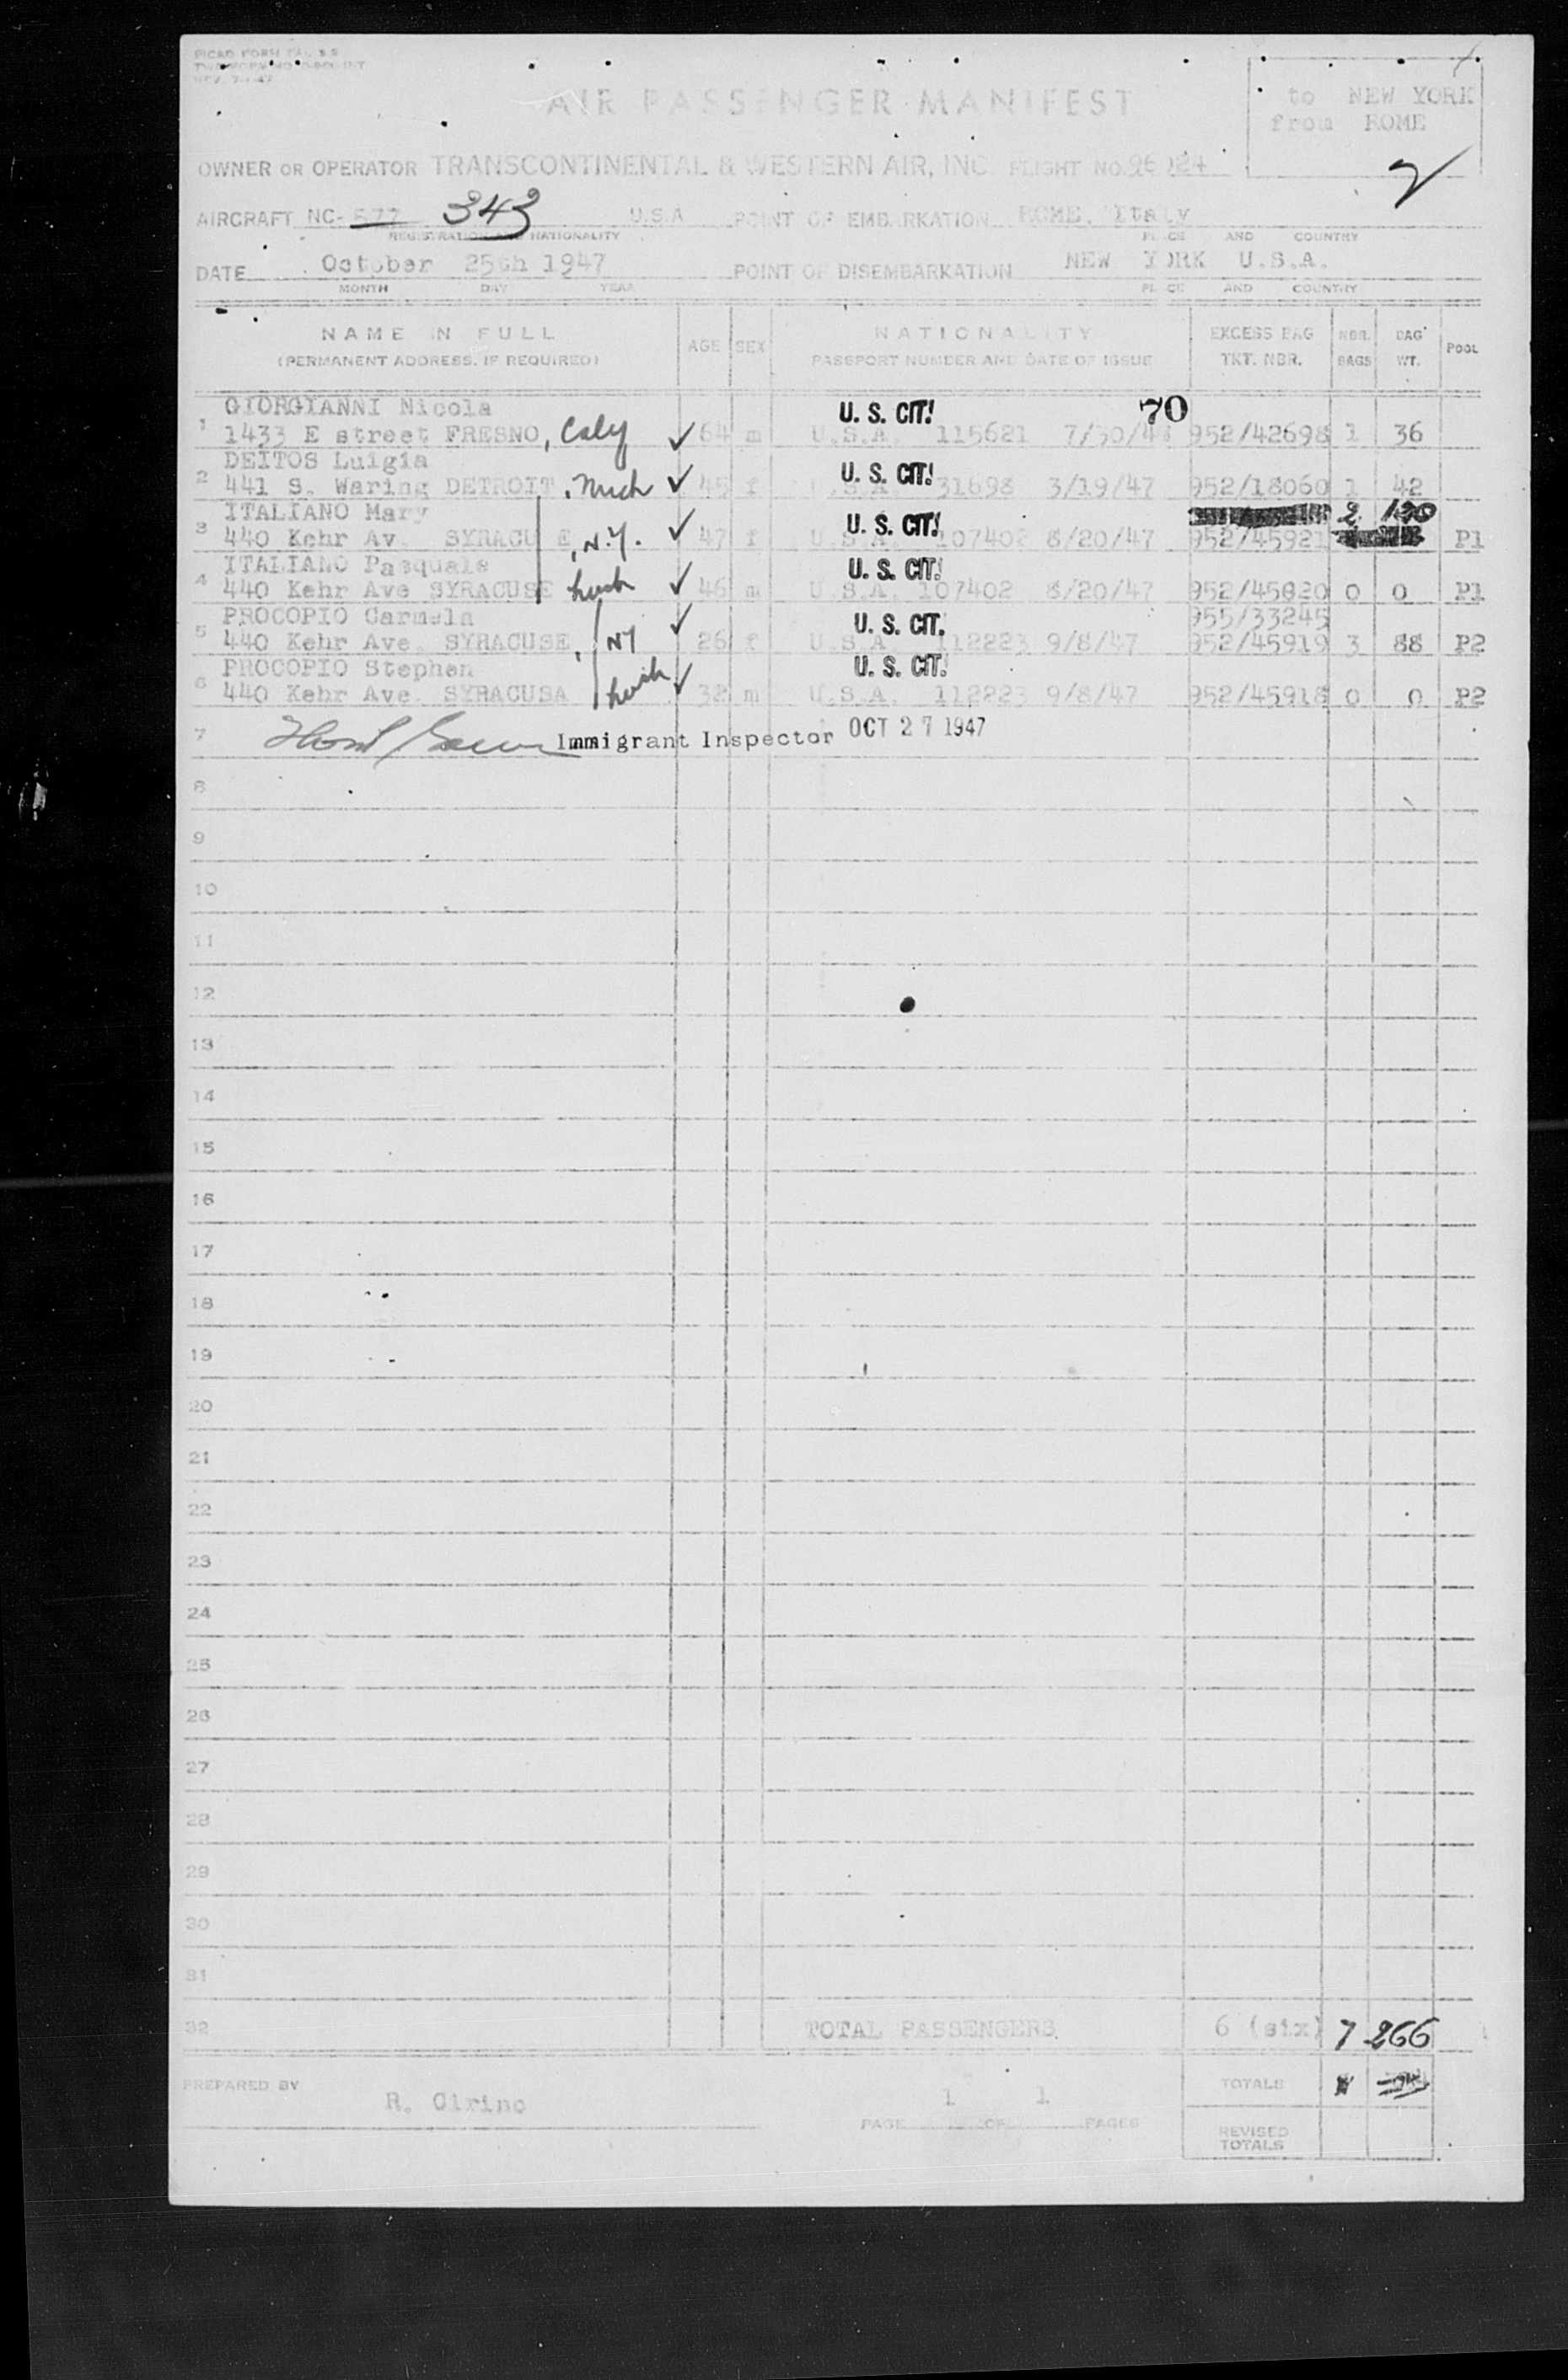 AIR PASSENGER MANIFEST
to NEW YORK
from ROME
2
OWNER OR OPERATOR TRANSCONTINENTAL & WESTERN AIR, INC. FLIGHT NO.
AIRCRAFT NC- 577 343 U.S.A POINT OF EMBARKATION ROME, Italy
REGISTRATION AND NATIONALITY PLACE AND COUNTRY
DATE October 25th 1947 POINT OF DISEMBARKATION NEW YORK U.S.A.
MONTH DAY YEAR PLACE AND COUNTRY
NAME IN FULL (PERMANENT ADDRESS. IF REQUIRED) AGE SEX NATIONALITY PASSPORT NUMBER AND DATE OF ISSUE EXCESS BAG TKT. NBR. NBR. BAGS BAG WT. POOL
GIORGIANNI Nicola U. S. CIT. 70
1 1433 E street FRESNO, Caly ✓ 64 m U.S.A. 115621 952/42698 1 36
DEITOS Luigia U. S. CIT.
2 441 S. Waring DETROIT, Mich ✓ 45 f U.S.A. 31698 3/19/47 952/18060 1 42
ITALIANO Mary U. S. CIT. 2
3 440 Kehr Av. SYRACUSE, N.Y. ✓ 47 f U.S.A. 107402 8/20/47 952/45921 P1
ITALIANO Pasquale U. S. CIT.
4 440 Kehr Ave SYRACUSE ✓ 46 m U.S.A. 107402 8/20/47 952/45820 0 0 P1
PROCOPIO Carmela U. S. CIT. 955/33245
5 440 Kehr Ave. SYRACUSE, NY ✓ 26 f U.S.A. 112223 9/8/47 952/45919 3 88 P2
PROCOPIO Stephen U. S. CIT.
6 440 Kehr Ave. SYRACUSA ✓ 32 m U.S.A. 112223 9/8/47 952/45918 0 0 P2
7 Immigrant Inspector OCT 27 1947
8
9
10
11
12
13
14
15
16
17
18
19
20
21
22
23
24
25
26
27
28
29
30
31
32 TOTAL PASSENGERS 6 (six) 7 266
PREPARED BY R. Cirino PAGE 1 OF 1 PAGES TOTALS
REVISED TOTALS